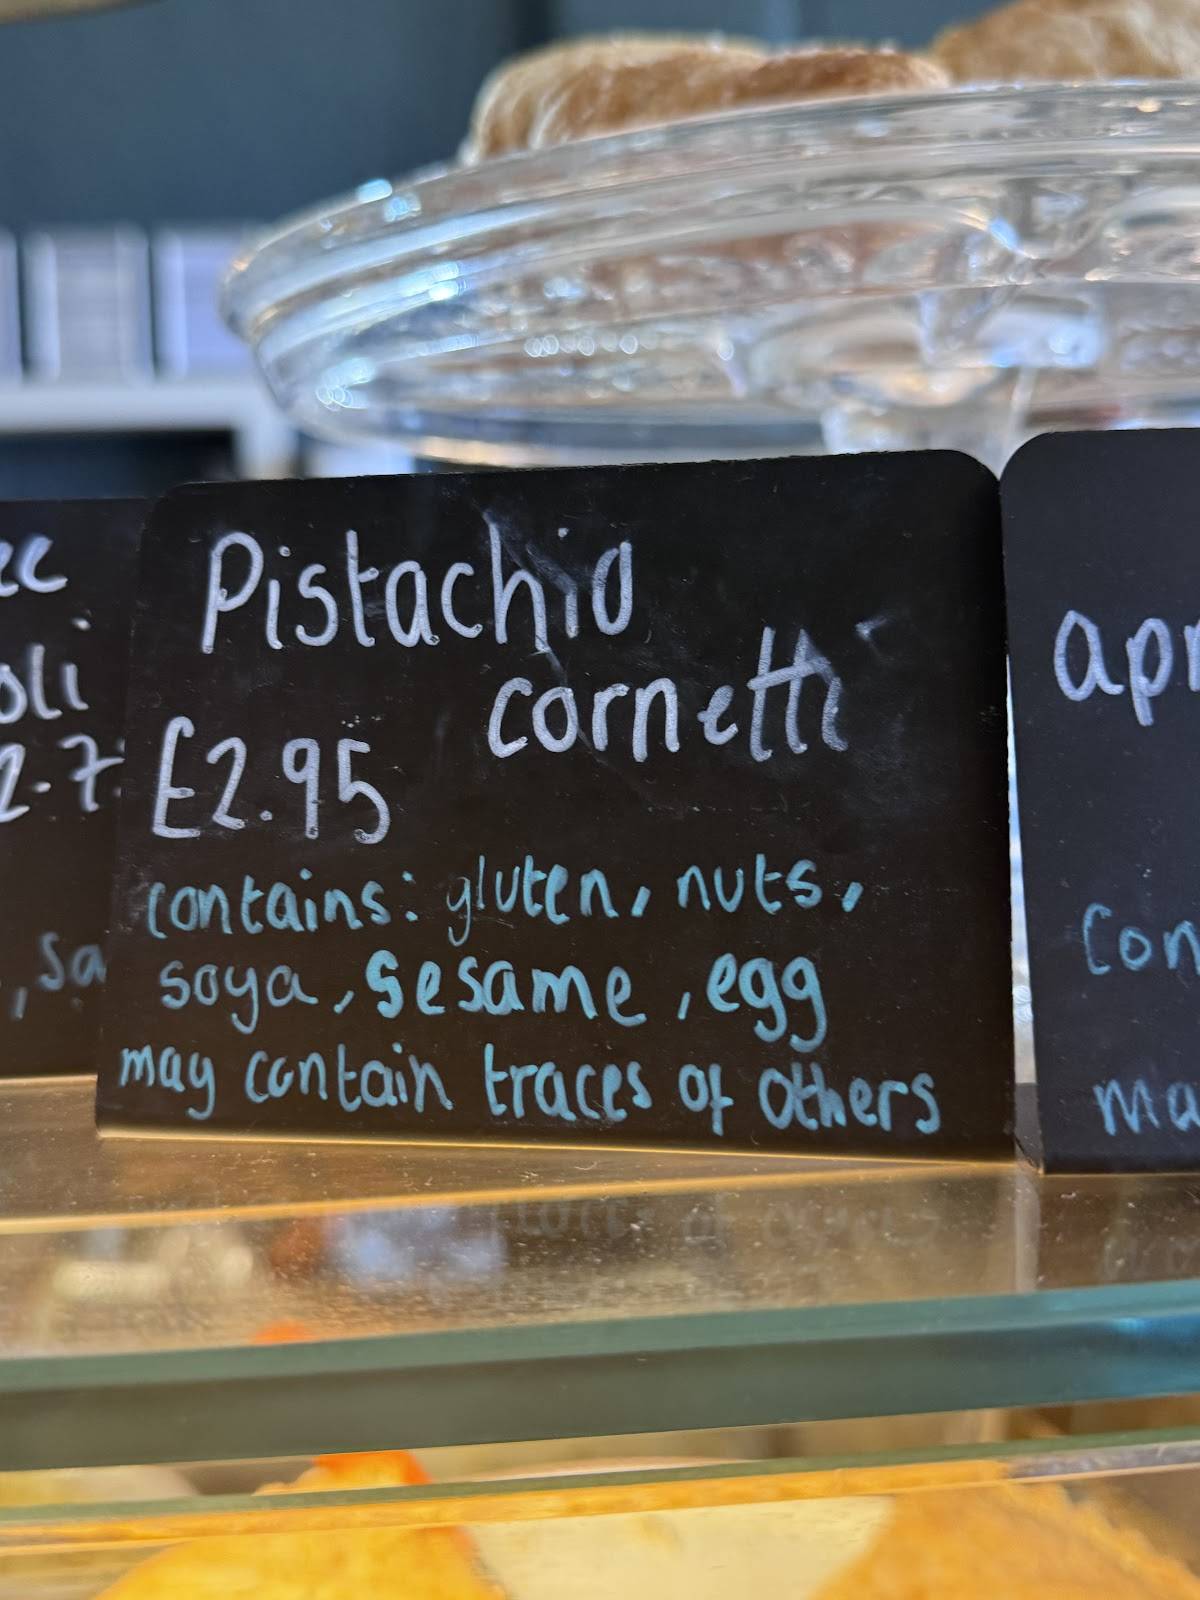 Pistachio
cornetti
£2.95
contains: gluten, nuts,
soya, sesame, egg
may contain traces of others